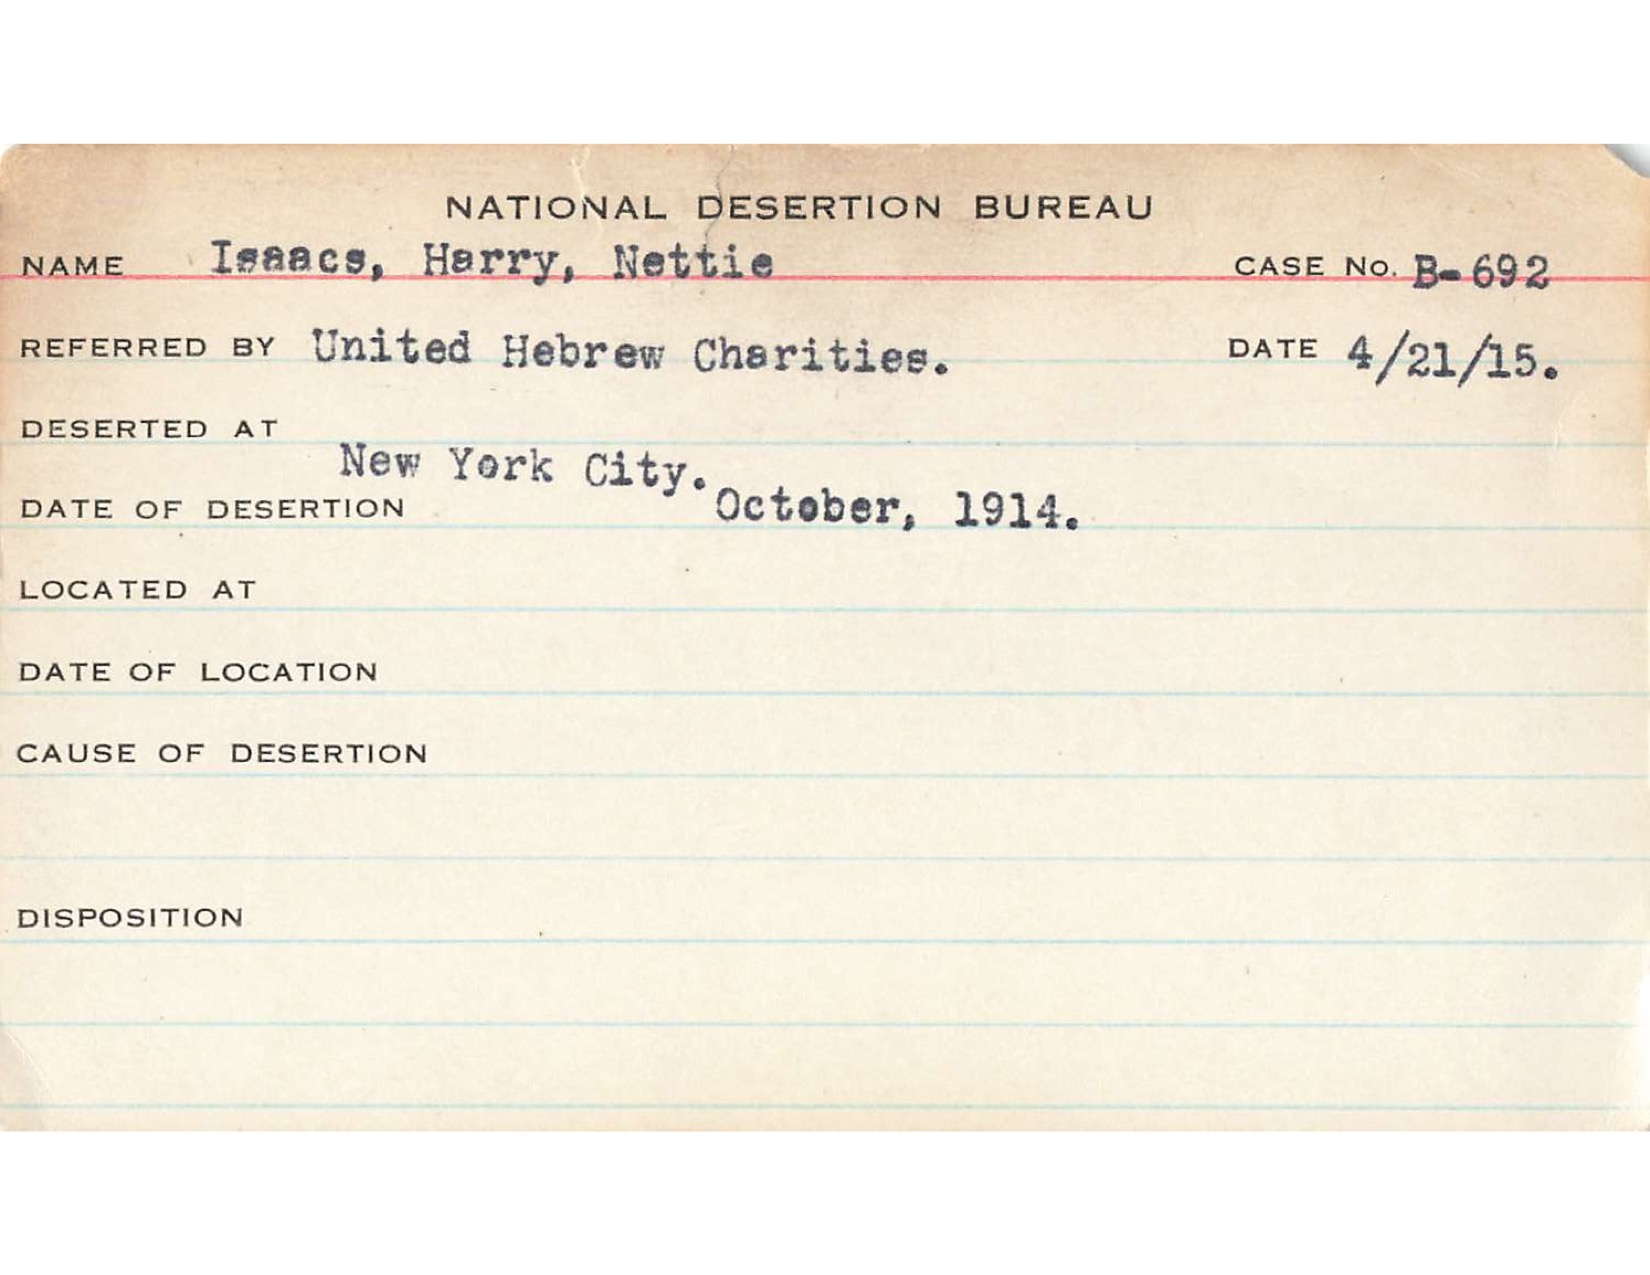 NATIONAL DESERTION BUREAU
NAME Isaacs, Harry, Nettie CASE No. B-692
REFERRED BY United Hebrew Charities. DATE 4/21/15.
DESERTED AT
New York City.
DATE OF DESERTION October, 1914.
LOCATED AT
DATE OF LOCATION
CAUSE OF DESERTION
DISPOSITION